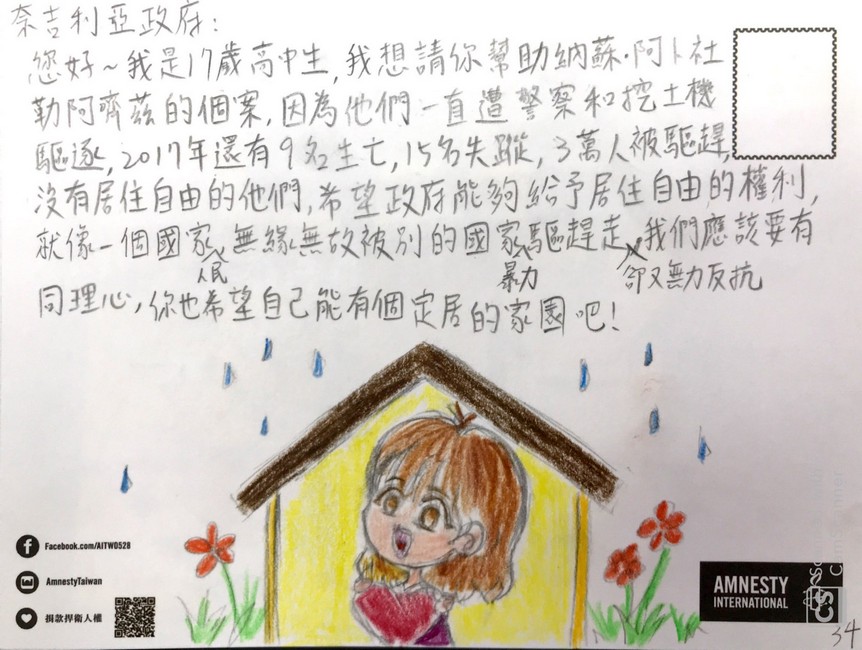 奈吉利亞政府：
您好～我是17歲高中生，我想請你幫助納蘇·阿卜社
勒阿齊茲的個案，因為他們一直遭警察和挖土機
驅逐，2017年還有9名生亡，15名失蹤，3萬人被驅趕，
沒有居住自由的他們，希望政府能夠給予居住自由的權利，
就像一個國家人民無緣無故被別的國家暴力驅趕走卻又無力反抗，我們應該要有
同理心，你也希望自己能有個定居的家園吧！
Facebook.com/AITW0528
AmnestyTaiwan
捐款捍衛人權
AMNESTY
INTERNATIONAL
CS
34